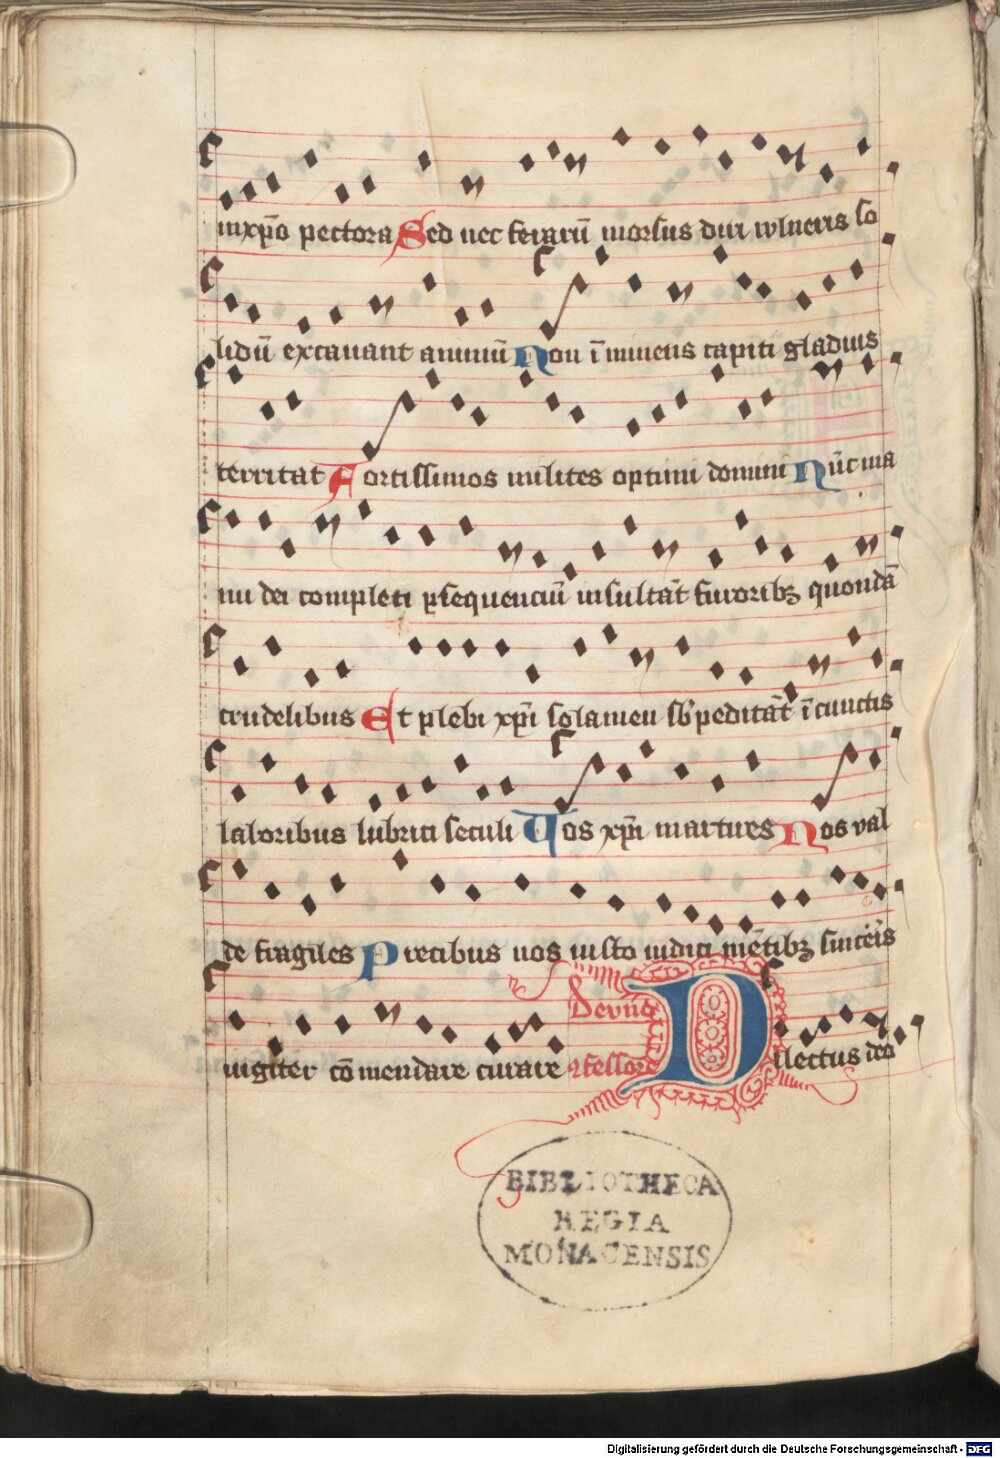 in xp̄o pectora Sed nec ferarū morsus diri wlneris so
lidū excauant animū Non ī minens capiti gladius
territat Fortissimos milites optimi domini Nūc ma
nu dei completi ꝑsequenciū insultāt furoribꝫ quondā
crudelibus Et plebi xp̄i solamen sb̓peditāt ī cunctis
laboribus lubrici seculi Vos xp̄i martires Nos val
de fragiles Precibus uos iusto iudici mētibꝫ sinceris
iugiter cō mendare curate De vno ꝯfessore Dilectus deo
BIBLIOTHECA
REGIA
MONACENSIS
Digitalisierung gefördert durch die Deutsche Forschungsgemeinschaft - DFG